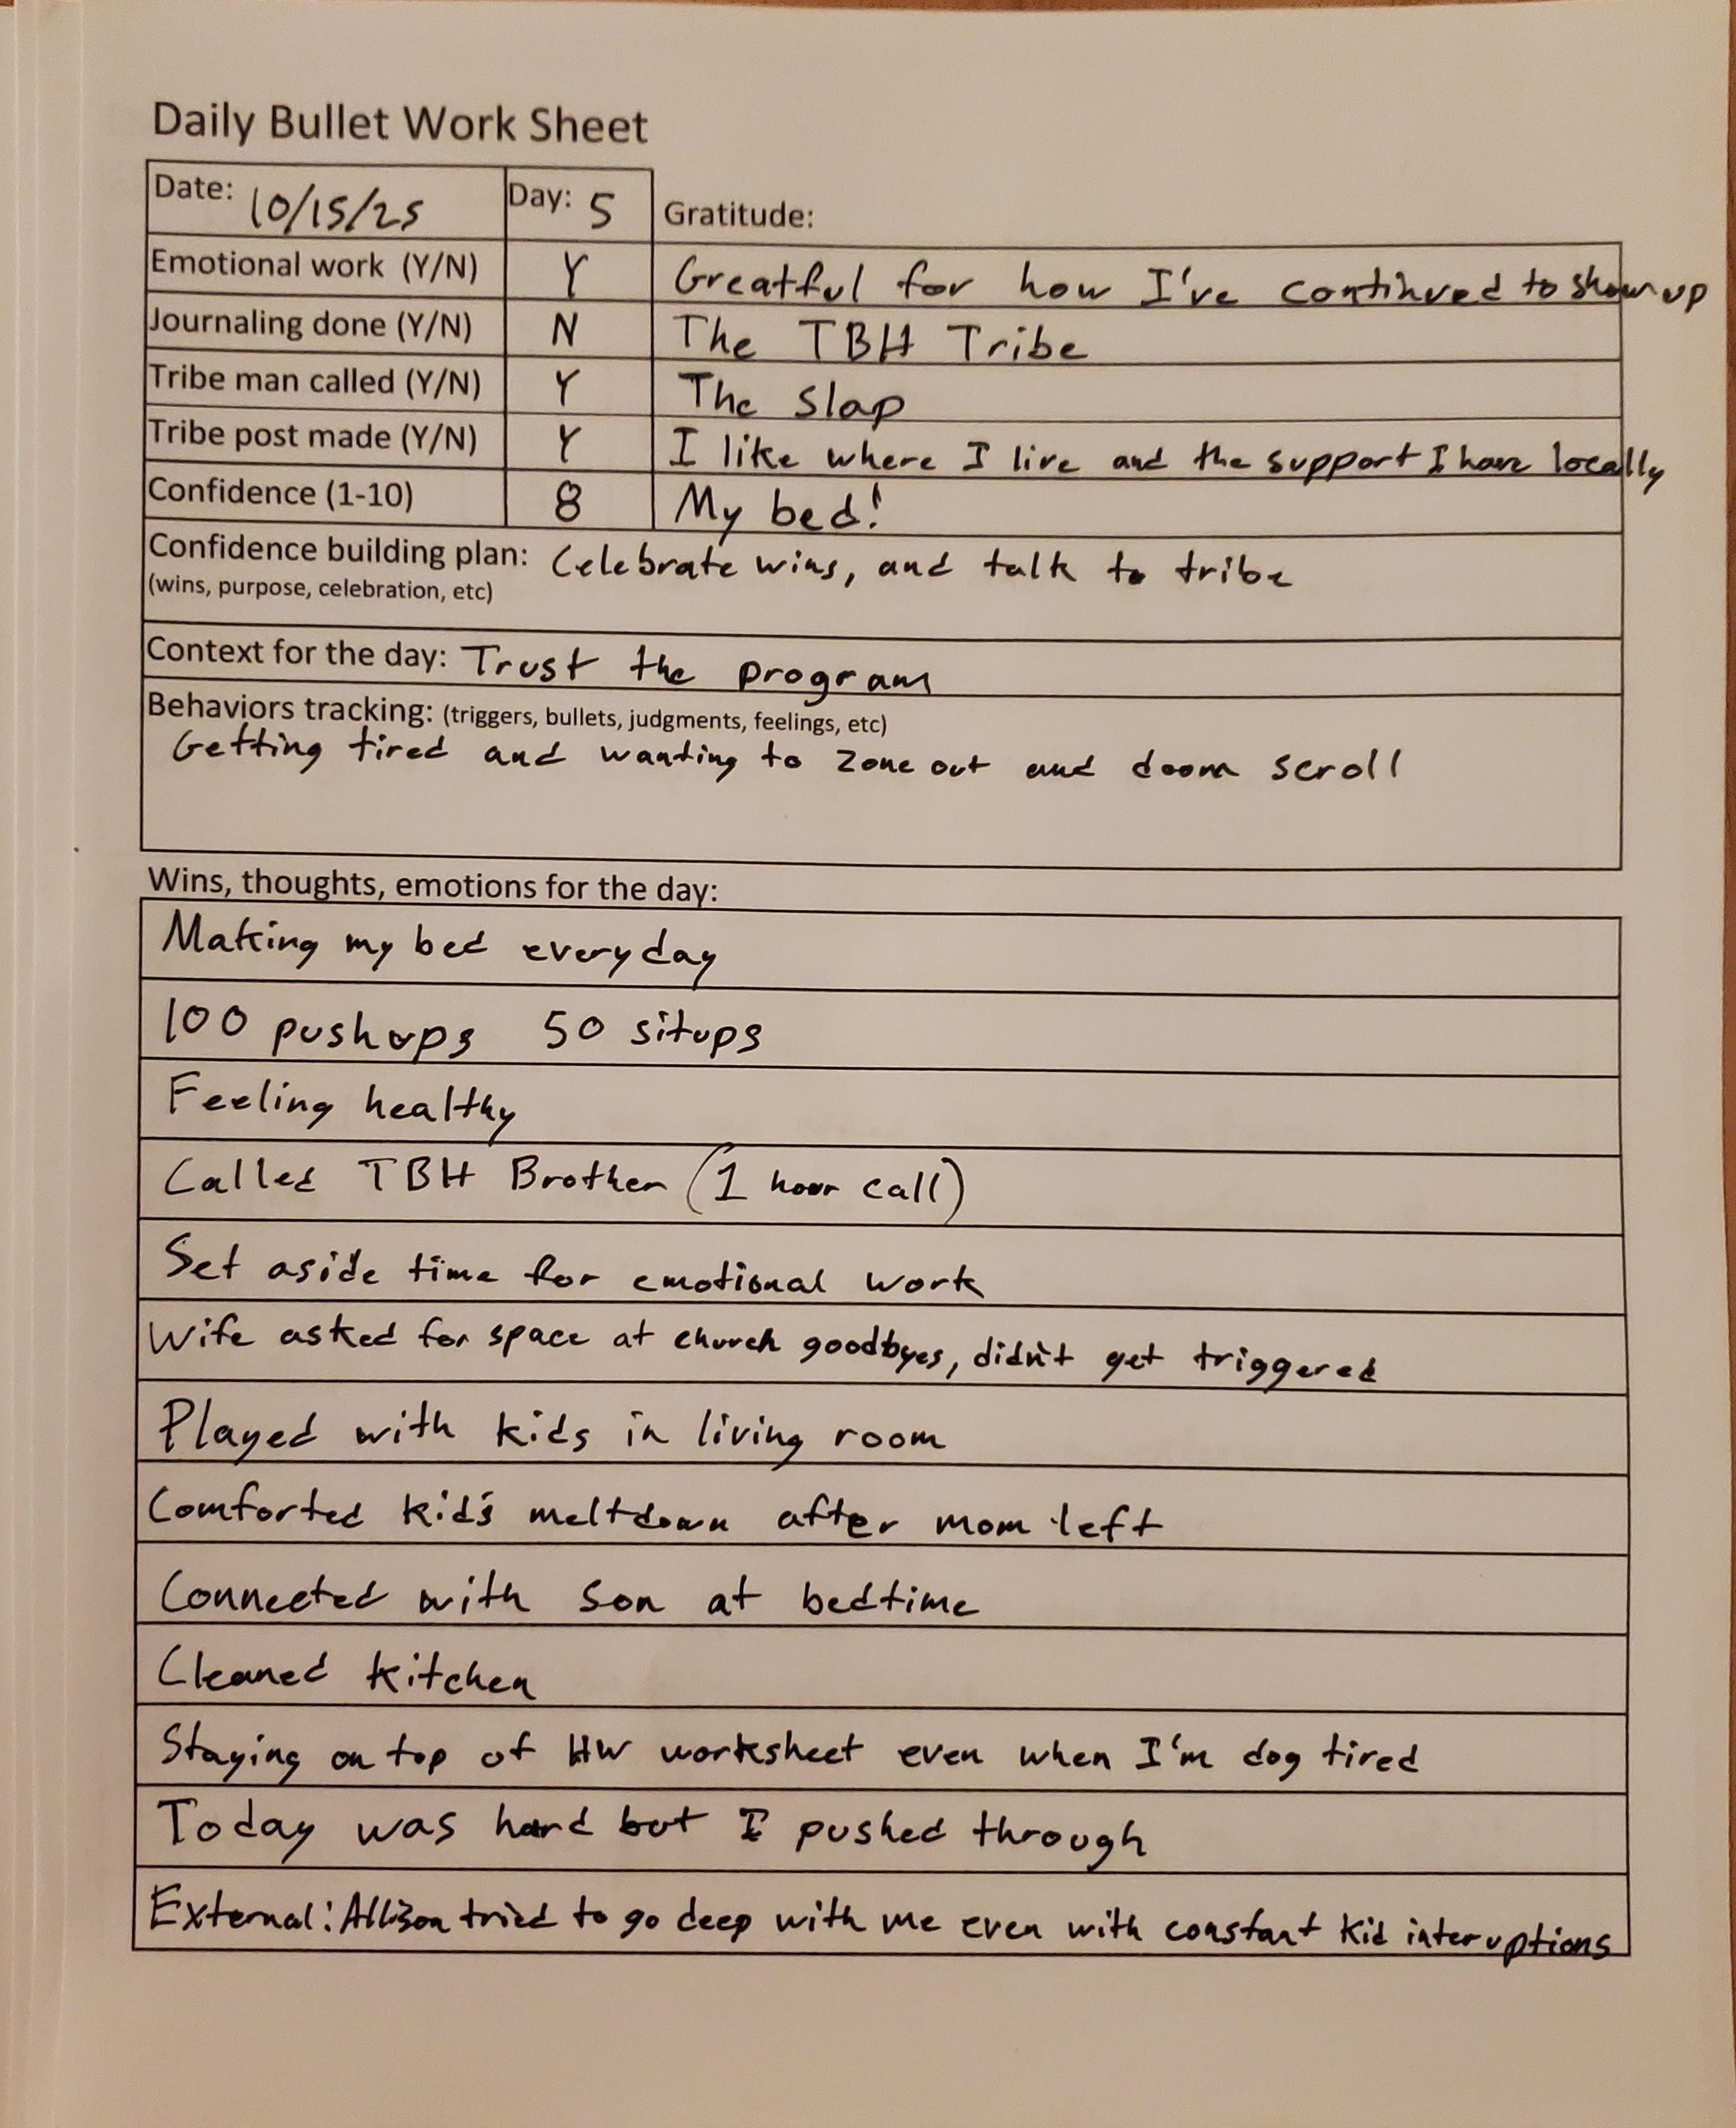 Daily Bullet Work Sheet
Date: 10/15/25 Day: 5 Gratitude:
Emotional work (Y/N) Y Greatful for how I've continued to show up
Journaling done (Y/N) N The TBH Tribe
Tribe man called (Y/N) Y The slap
Tribe post made (Y/N) Y I like where I live and the support I have locally
Confidence (1-10) 8 My bed!
Confidence building plan: Celebrate wins, and talk to tribe
(wins, purpose, celebration, etc)
Context for the day: Trust the program
Behaviors tracking: (triggers, bullets, judgments, feelings, etc)
Getting tired and wanting to zone out and doom scroll
Wins, thoughts, emotions for the day:
Making my bed everyday
100 pushups 50 situps
Feeling healthy
Called TBH Brother (1 hour call)
Set aside time for emotional work
Wife asked for space at church goodbyes, didn't get triggered
Played with kids in living room
Comforted kid's meltdown after mom left
Connected with son at bedtime
Cleaned kitchen
Staying on top of HW worksheet even when I'm dog tired
Today was hard but I pushed through
External: Allison tried to go deep with me even with constant kid interuptions